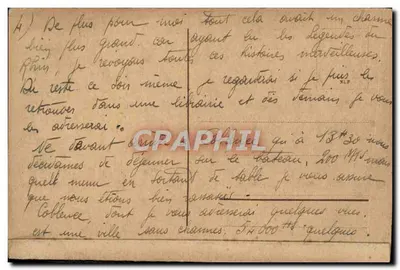 4) De plus pour moi tout cela avait un charme
bien plus grand car ayant lu les légendes du
Rhin, je revoyais toutes ces histoires merveilleuses.
Du reste ce soir même je regarderai si je puis la
retrouver dans une librairie et dès demain, je vous
en adresserai.
CPAPHIL
Ne devant qu'à 13h30 nous
décidâmes de déjeuner sur le bateau, 200
quel menu en sortant de table je vous assure
que nous étions bien
Coblence, dont je vous adresserai quelques vues.
est une ville sans charmes. 54.000 quelques.